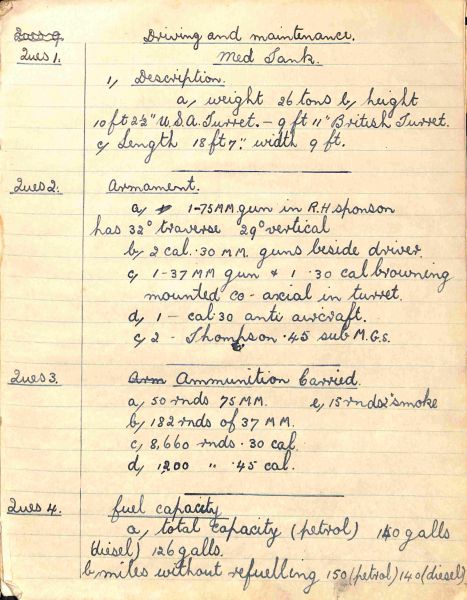 Driving and maintenance.
Ques 1. Med Tank.
1, Description.
a, weight 26 tons b, height
10 ft 2½" U.S.A. Turret. – 9 ft 11" British Turret.
c, Length 18 ft 7." width 9 ft.
Ques 2. Armament.
a, 1-75 MM gun in R.H sponson
has 32° traverse 29° vertical
b, 2 cal .30 MM. guns beside driver.
c, 1-37 MM gun & 1 .30 cal browning
mounted co-axial in turret.
d, 1 – cal 30 anti aircraft.
c, 2 – Thompson .45 sub M.G.s.
Ques 3. Arm Ammunition Carried.
a, 50 rnds 75 MM. e, 15 rnds 2" smoke
b, 182 rnds of 37 MM.
c, 8,660 rnds .30 cal
d, 1,200 " .45 cal.
Ques 4. fuel capacity
a, total capacity (petrol) 140 galls
(diesel) 126 galls.
b, miles without refuelling 150 (petrol) 140 (diesel)